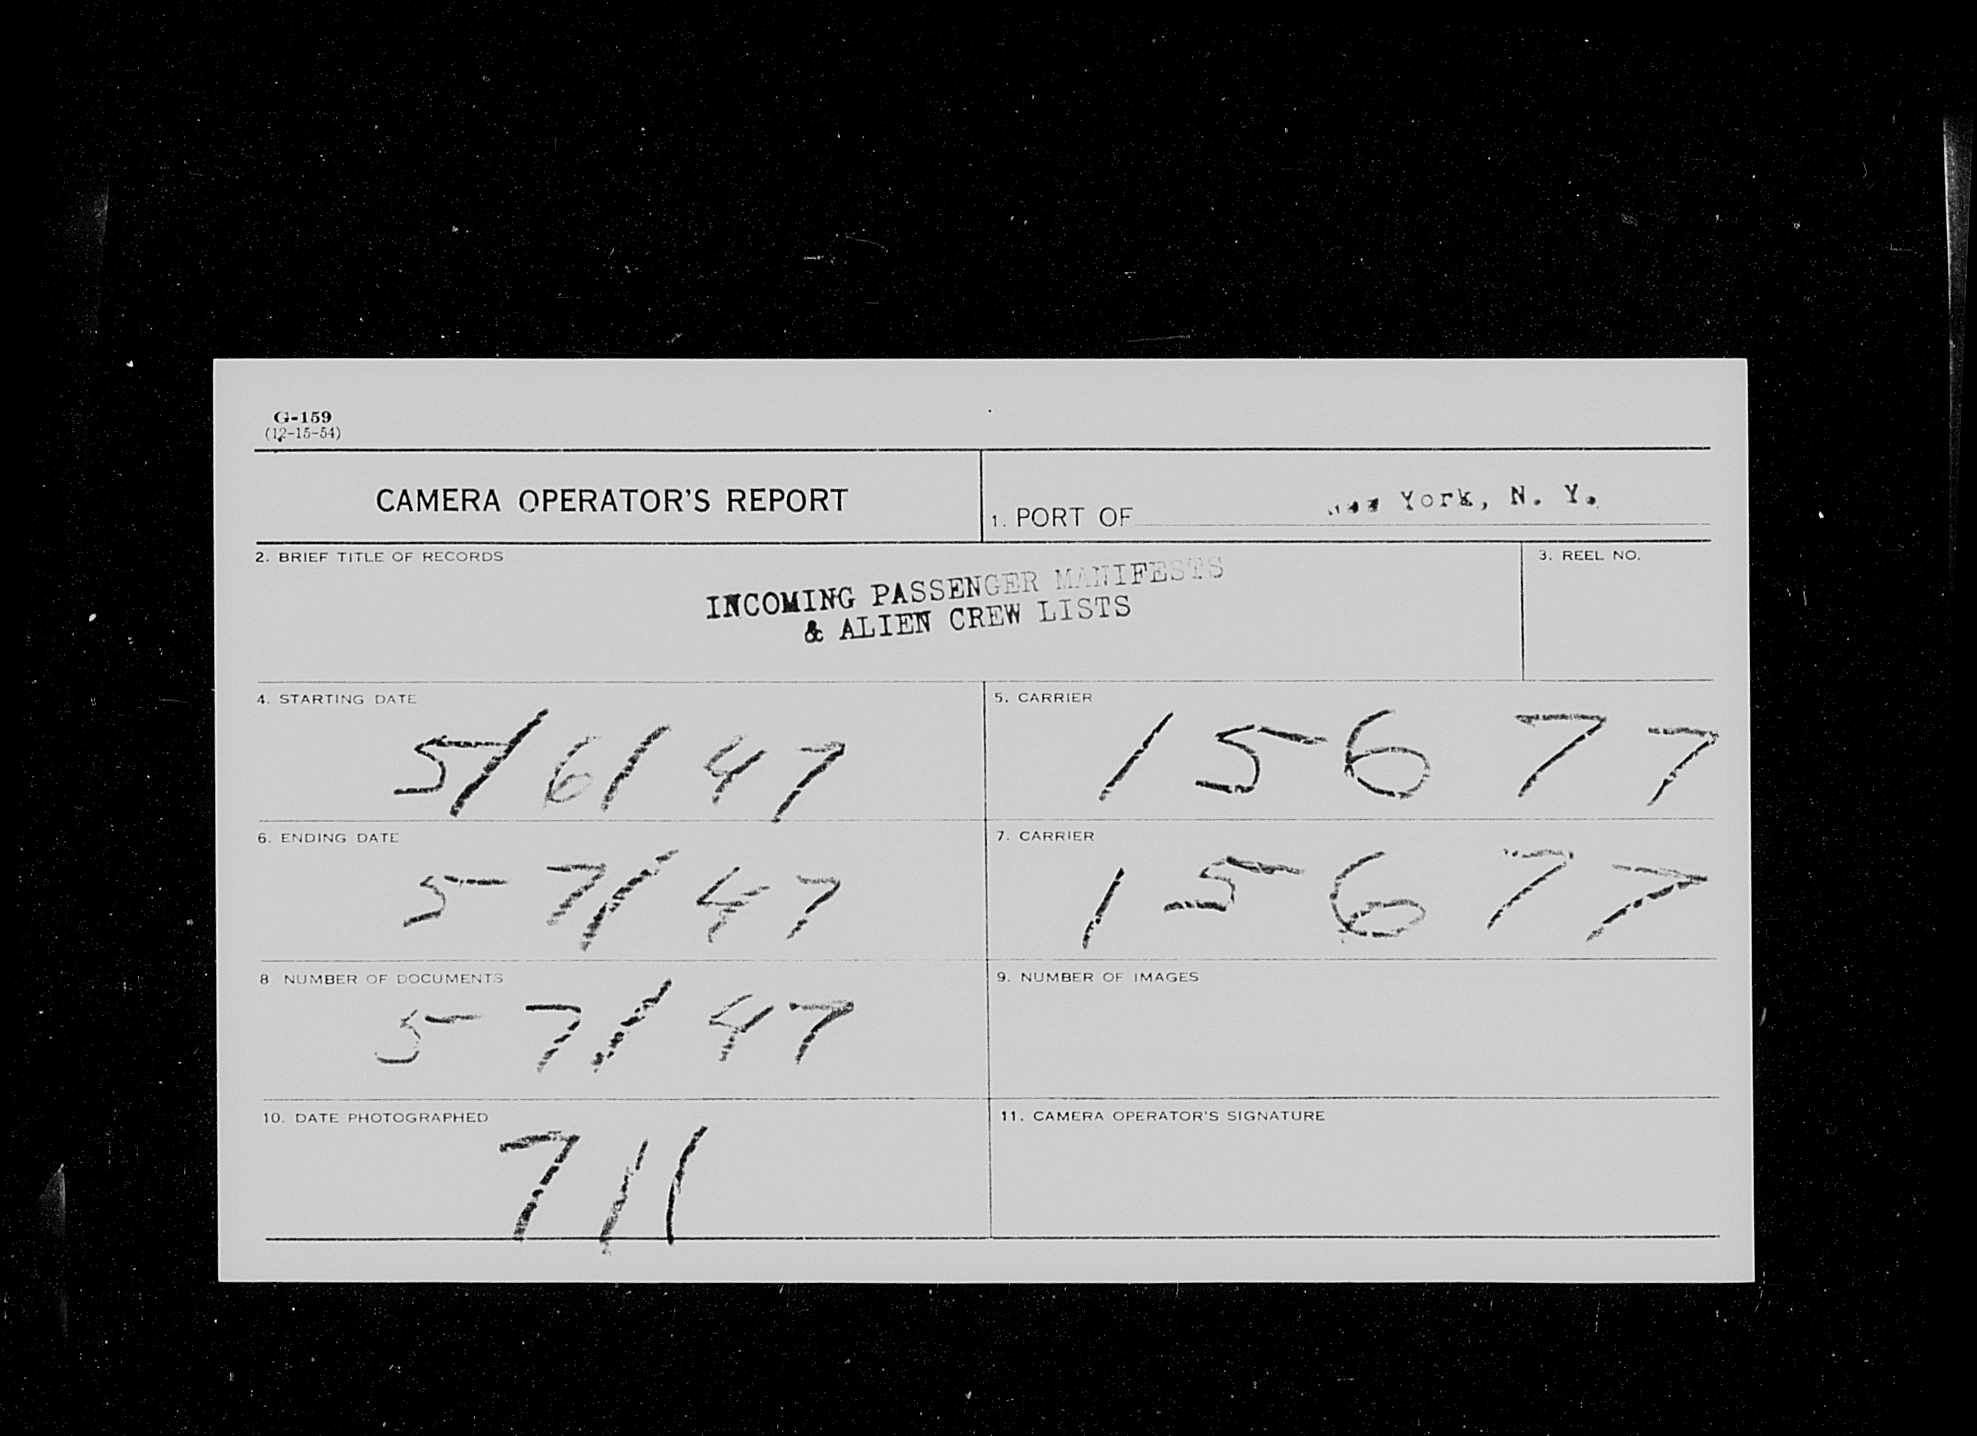 G-159
(12-15-54)
CAMERA OPERATOR'S REPORT
1. PORT OF New York, N. Y.
2. BRIEF TITLE OF RECORDS
INCOMING PASSENGER MANIFESTS
& ALIEN CREW LISTS
3. REEL NO.
4. STARTING DATE
5/6/47
5. CARRIER
15677
6. ENDING DATE
5 7/47
7. CARRIER
15677
8 NUMBER OF DOCUMENTS
5 7/47
9. NUMBER OF IMAGES
10. DATE PHOTOGRAPHED
711
11. CAMERA OPERATOR'S SIGNATURE